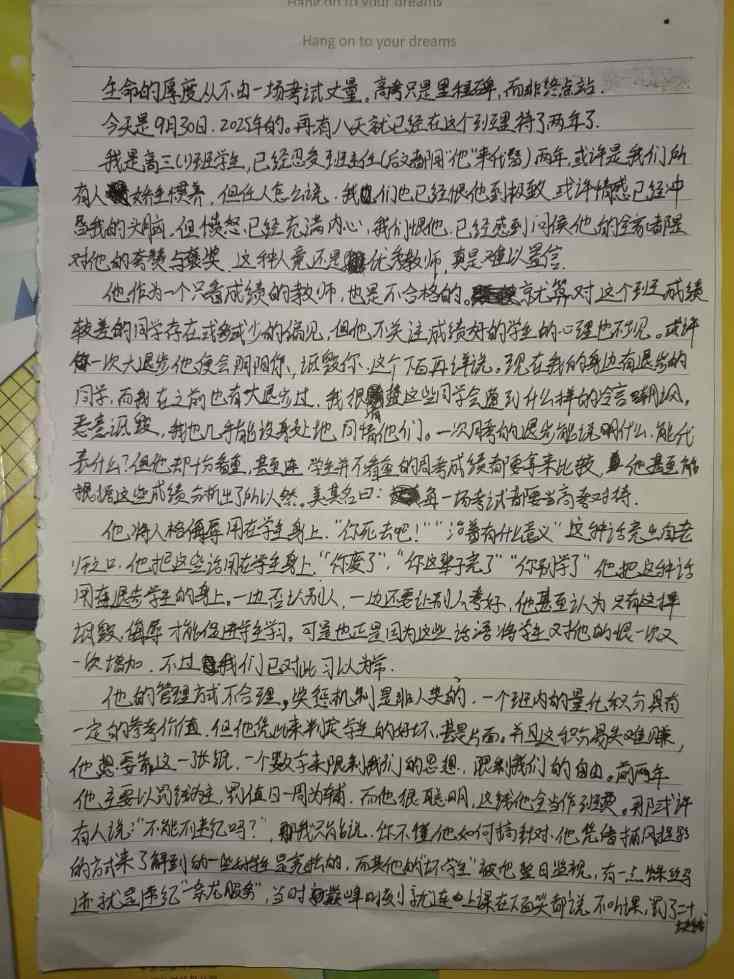 Hang on to your dreams
Hang on to your dreams
生命的厚度从不由一场考试丈量。高考只是里程碑，而非终点站.
今天是9月30日. 2025年的。再有八天就已经在这个班里待了两年了.
我是高三(1)班学生，已经忍受班主任(后文都用"他"来代替)两年，或许是我们所
有人娇生惯养，但任人怎么说，我们也已经恨他到极致，或许情感已经冲
昏我的头脑，但愤怒已经充满内心，我们恨他，已经感到问候他的全家都是
对他的夸赞与褒奖. 这种人竟还是优秀教师，真是难以置信.
他作为一个只看成绩的教师，也是不合格的。就算对这个班成绩
较差的同学存在或多或少的偏见，但他不关注成绩好的学生的心理也不见。或许
你一次大退步他便会阴阳你、诋毁你、这个下面再详说。现在我的身边有退步的
同学，而我在之前也有大退步过，我很清楚这些同学会遭到什么样的冷言嘲讽。
恶意诋毁，我也几乎能设身处地，同情他们。一次周考的退步能说明什么，能代
表什么？但他却十分看重，甚至连学生并不看重的周考成绩都要拿来比较，他甚至能
根据这些成绩分析出了所以然。美其名曰：每一场考试都要当高考对待.
他将人格侮辱用在学生身上，"你死去吧！""活着有什么意义"这种话竟出自老
师之口，他把这些话用在学生身上，"你废了"，"你这辈子完了""你别学了"他把这种话
用在退步学生的身上。一边否认别人，一边还要让别人考好，他甚至认为只有这样
诋毁、侮辱才能促进学生学习。可是也正是因为这些话语将学生对他的恨一次又
一次增加. 不过我们已对此习以为常.
他的管理方式不合理，奖惩机制是非人类的，一个班内的量化积分具有
一定的参考价值，但他凭此来判定学生的好坏，甚是片面。并且这积分易失难赚，
他想要靠这一张纸，一个数字来限制我们的思想，限制我们的自由。前两年
他主要以罚钱为主，罚值日一周为辅，而他很聪明，这钱他全当作班费。那或许
有人说："不能不违纪吗？"，那我只能说，你不懂他如何搞针对，他凭借捕风捉影
的方式来了解到的一些对学生是宽松的，而其他的"坏学生"被他整日监视，有一点蛛丝马
迹就是违纪"一条龙服务"，当时巅峰时刻就连上课在下面笑都说不听课，罚了二十